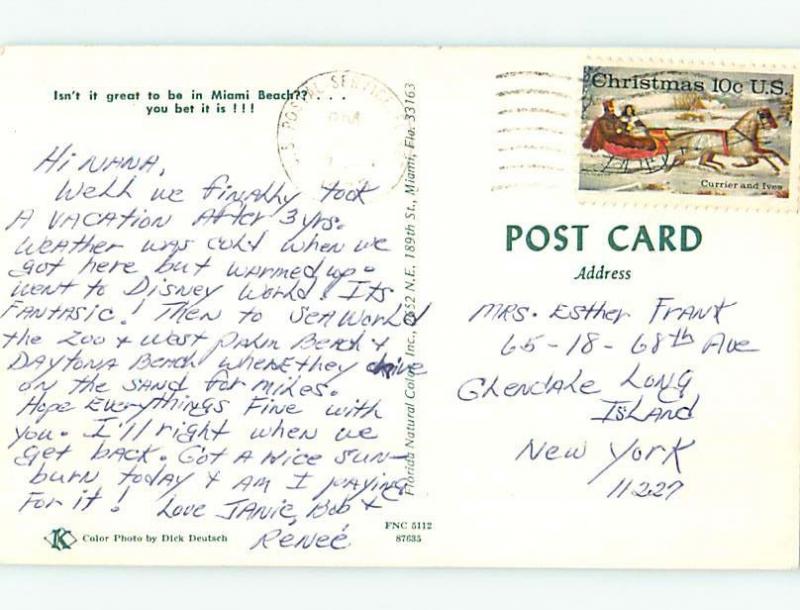 Isn't it great to be in Miami Beach?? . . .
you bet it is ! ! !
Hi NANA,
Well we finally took
A VACATION After 3 yrs.
Weather was cold when we
got here but warmed up.
went to Disney World! Its
FANTASIC! Then to SEA World
the Zoo + West Palm Beach +
DAYTONA BEACH where they drive
on the SAND for miles.
Hope Everythings Fine with
you. I'll right when we
get back. Got a Nice Sun-
burn today + AM I paying
For it! Love JANIE, Bob +
Reneé
Color Photo by Dick Deutsch
FNC 5112
87635
Florida Natural Color, Inc., N.E. 189th St., Miami, Fla. 33163
U.S. POSTAL SERVICE
PM
Christmas 10c U.S.
Currier and Ives
POST CARD
Address
MRS. Esther FRANK
65-18-68th Ave
Glendale Long
Island
New York
11227